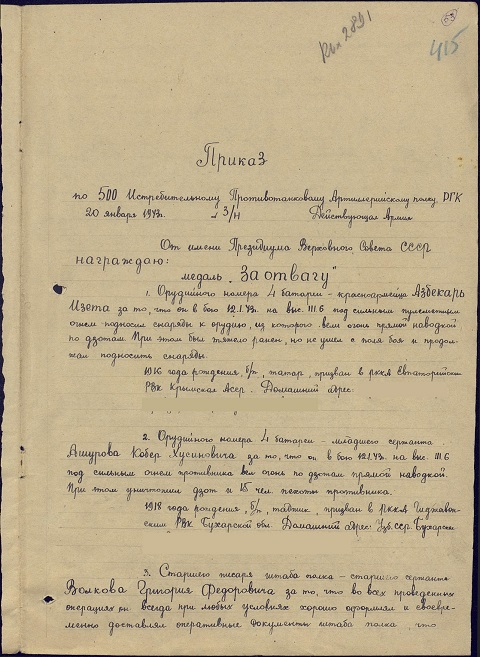 Вх 2891
63
415
Приказ
по 500 Истребительному Противотанковому Артиллерийскому полку РГК
20 января 1943г. № 3/н Действующая Армия
От имени Президиума Верховного Совета СССР
награждаю:
медаль „За отвагу"
1. Орудийного номера 4 батареи - красноармейца Азбекарь
Изета за то, что он в бою 12.1.43г. на выс. 111.6 под сильным пулеметным
огнем подносил снаряды к орудию, из которого вели огонь прямой наводкой
по дзотам. При этом был тяжело ранен, но не ушел с поля боя и продол-
жал подносить снаряды.
1916 года рождения, б/п, татар, призван в РККА Евпаторийским
РВК Крымская Асср. Домашний адрес:
" " " "
2. Орудийного номера 4 батареи - младшего сержанта
Ашурова Кобер Хусиновича за то, что он в бою 12.1.43г. на выс. 111.6
под сильным огнем противника вел огонь по дзотам прямой наводкой.
При этом уничтожил дзот и 15 чел. пехоты противника.
1918 года рождения, б/п, таджик, призван в РККА Гиджован-
ским РВК Бухарской обл. Домашний адрес: Узб.ССР. Бухарск
3. Старшего писаря штаба полка - старшего сержанта
Волкова Григория Федоровича за то, что во всех проведенных
операциях он всегда при любых условиях хорошо оформлял и своевре-
менно доставлял оперативные документы штаба полка, что